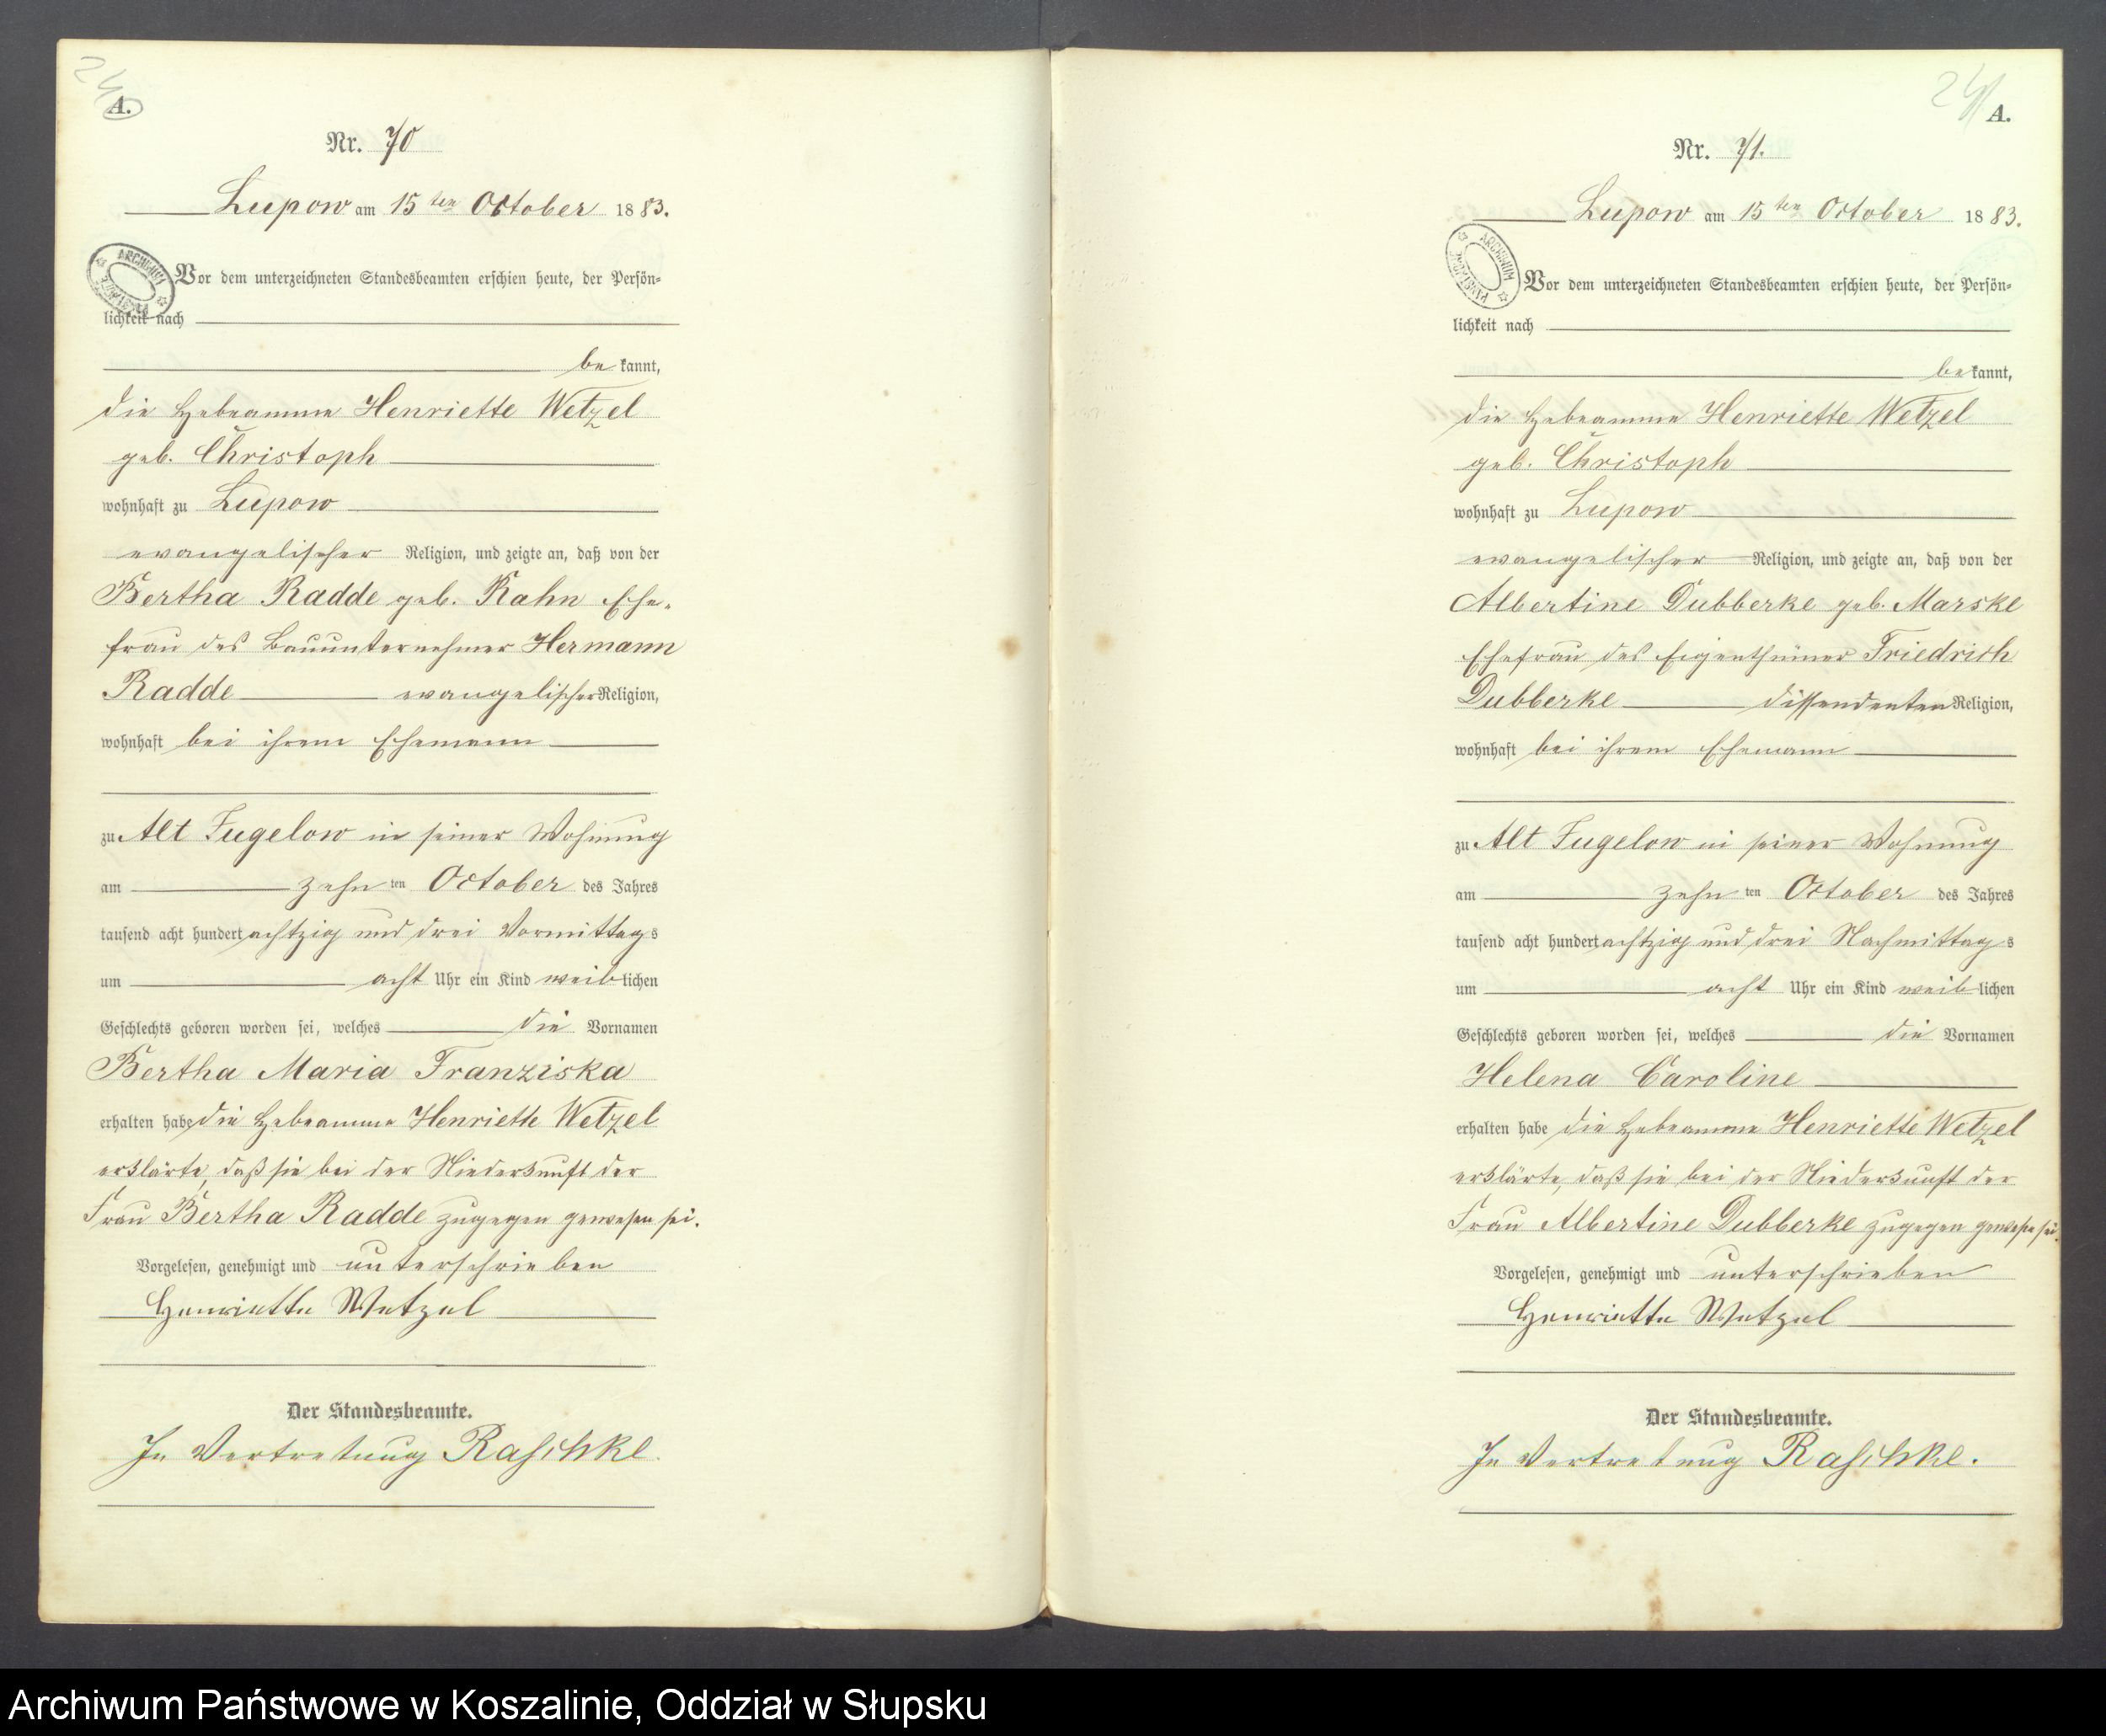 A.
Nr. 70
Lupow am 15ten October 1883.
Vor dem unterzeichneten Standesbeamten erschien heute, der Persön-
lichkeit nach
bekannt,
die Hebeamme Henriette Wetzel
geb. Christoph
wohnhaft zu Lupow
evangelischer Religion, und zeigte an, daß von der
Bertha Radde geb. Kahn Ehe-
frau des Bauunternehmer Hermann
Radde evangelischer Religion,
wohnhaft bei ihrem Ehemann
zu Alt Jugelow in seiner Wohnung
am zehnten October des Jahres
tausend acht hundert achtzig und drei Vormittags
um acht Uhr ein Kind weiblichen
Geschlechts geboren worden sei, welches die Vornamen
Bertha Maria Franziska
erhalten habe die Hebeamme Henriette Wetzel
erklärte, daß sie bei der Niederkunft der
Frau Bertha Radde zugegen gewesen sei.
Vorgelesen, genehmigt und unterschrieben
Henriette Wetzel
Der Standesbeamte.
In Vertretung Raschke.
24
A.
Nr. 71.
Lupow am 15ten October 1883.
ARCHIWUM
Vor dem unterzeichneten Standesbeamten erschien heute, der Persön-
lichkeit nach
bekannt,
die Hebeamme Henriette Wetzel
geb. Christoph
wohnhaft zu Lupow
evangelischer Religion, und zeigte an, daß von der
Albertine Dubberke geb. Marske
Ehefrau des Eigenthümer Friedrich
Dubberke dissendenten Religion,
wohnhaft bei ihrem Ehemann
zu Alt Jugelow in seiner Wohnung
am zehnten October des Jahres
tausend acht hundert achtzig und drei Nachmittags
um acht Uhr ein Kind weiblichen
Geschlechts geboren worden sei, welches die Vornamen
Helena Caroline
erhalten habe die Hebeamme Henriette Wetzel
erklärte, daß sie bei der Niederkunft der
Frau Albertine Dubberke zugegen gewesen sei.
Vorgelesen, genehmigt und unterschrieben
Henriette Wetzel
Der Standesbeamte.
In Vertretung Raschke.
Archiwum Państwowe w Koszalinie, Oddział w Słupsku